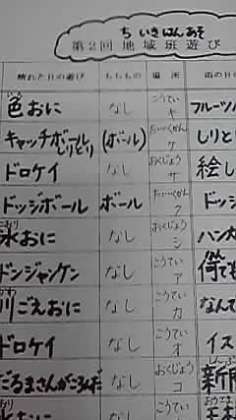 ちいきはんあそ
第2回地域班遊び
晴れた日の遊び もちもの 場所 雨の日の
色おに なし こうてい ヤ フルーツ
キャッチボールしりとり (ボール) たいいくかん ケ しりと
ドロケイ なし おくじょう サ 絵し
ドッジボール ボール たいいくかん ク ドッジ
こおり
氷おに なし おくじょう シ ハンカ
ドンジャンケン なし こうてい ア 何でも
かわ
川ごえおに なし こうてい カ なんて
ドロケイ なし こうてい オ イス
だるまさんがころんだ なし おくじょう コ 新